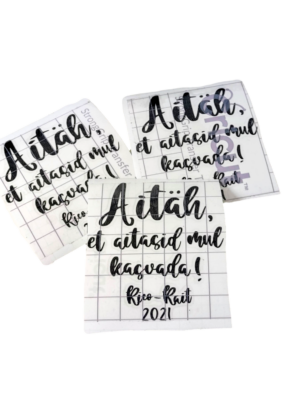 Aitäh,
et aitasid mul
kasvada!
Rico-Rait
Aitäh,
et aitasid mul
kasvada!
Rait
Aitäh,
et aitasid mul
kasvada!
Rico-Rait
2021